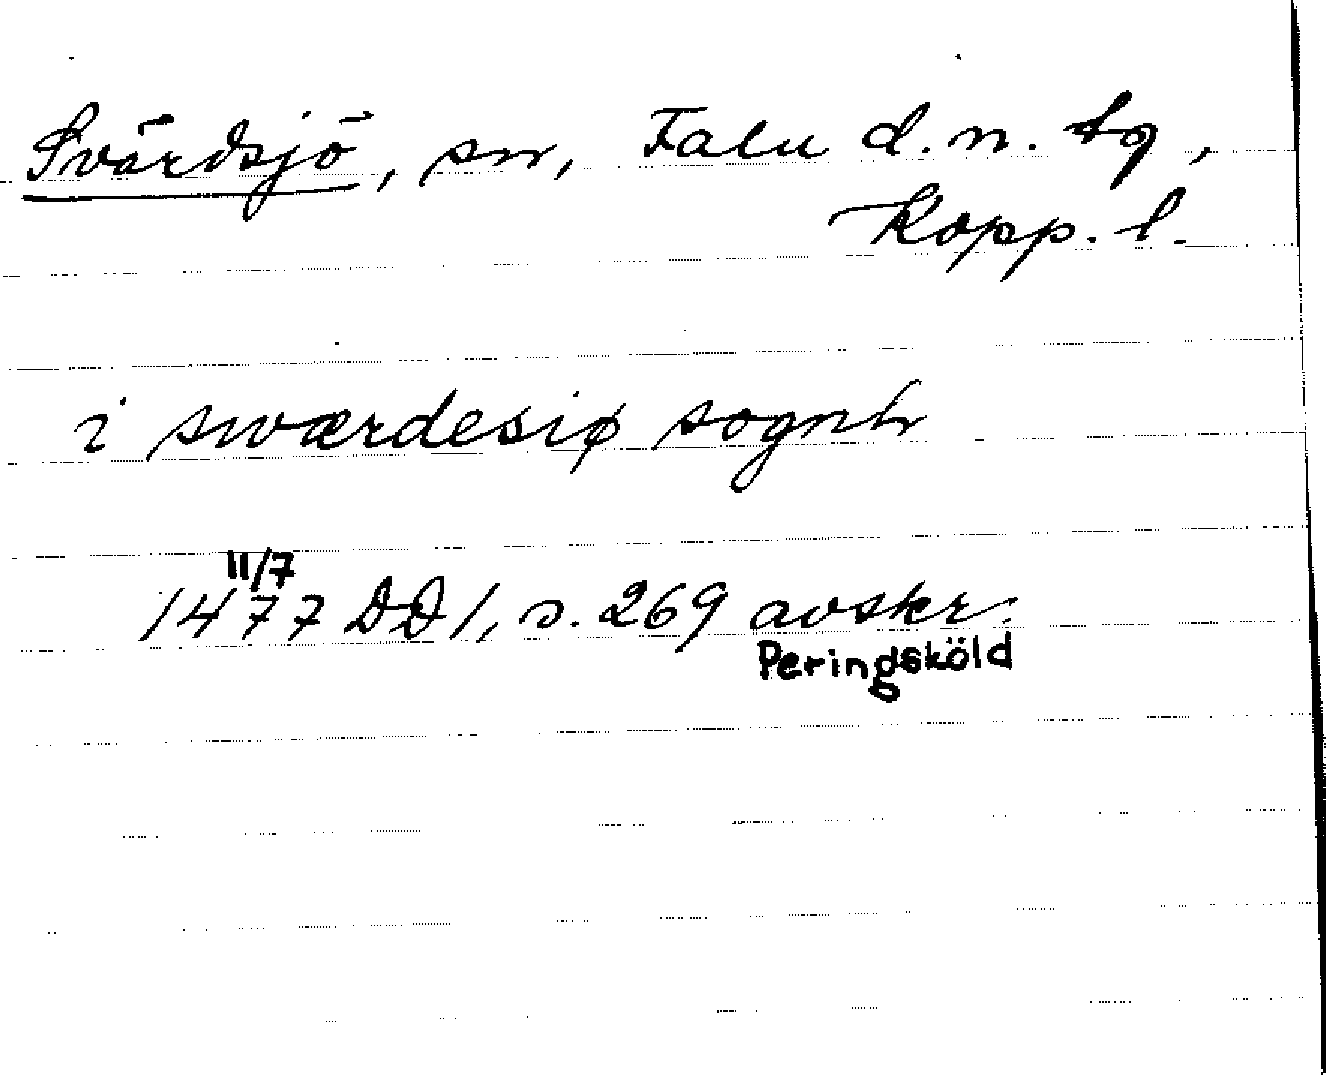 Svärdsjö, sn, Falu d.n. tg,
Kopp. l.
i swærdesiø sognh
11/7
1477 DD 1, s. 269 avskr.
Peringsköld